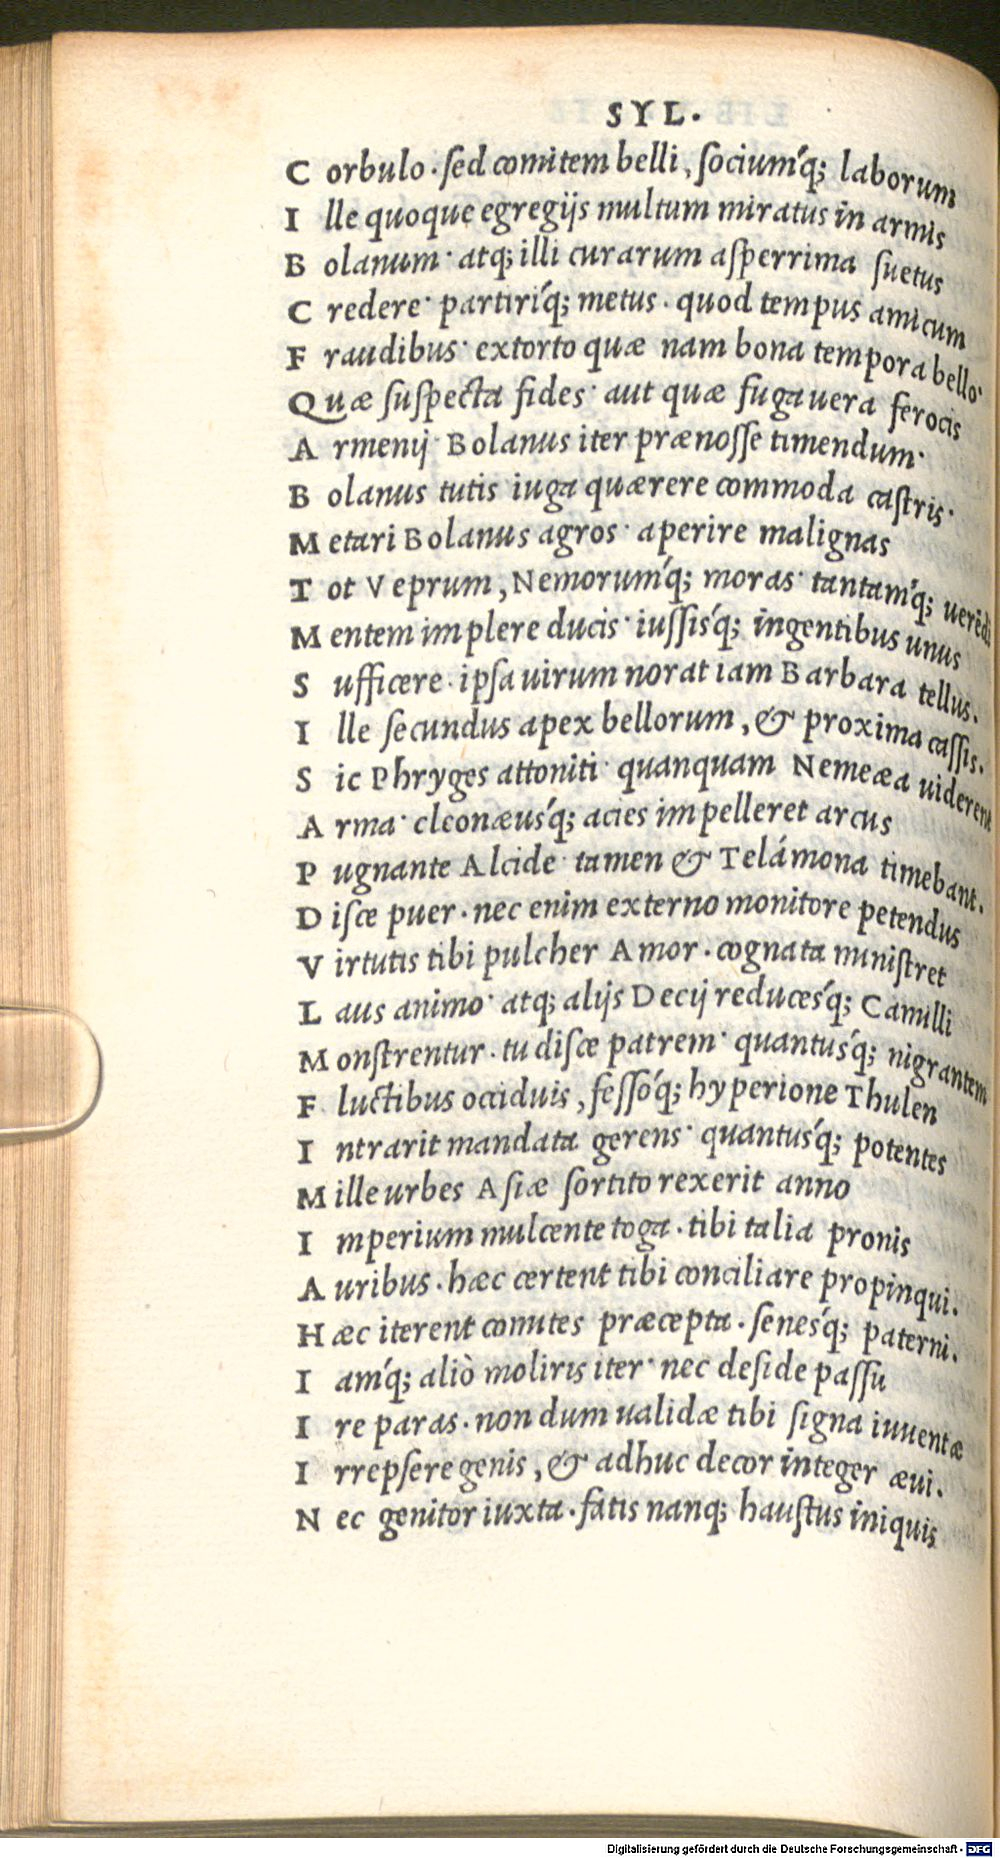 SYL.
C orbulo. sed comitem belli, sociumq́; laborum
I lle quoque egregijs multum miratus in armis
B olanum· atq; illi curarum asperrima suetus
C redere· partiriq́; metus. quod tempus amicum
F raudibus· extorto quæ nam bona tempora bello·
Quæ suspecta fides· aut quæ fuga uera ferocis
A rmenij Bolanus iter prænosse timendum·
B olanus tutis iuga quærere commoda castris·
M etari Bolanus agros· aperire malignas
T ot Veprum, Nemorumq́; moras· tantamq́; uerẽdi
M entem implere ducis· iussisq́; ingentibus unus
S ufficere. ipsa uirum norat iam Barbara tellus.
I lle secundus apex bellorum, & proxima cassis.
S ic Phryges attoniti· quanquam Nemeæa uiderent
A rma· cleonæusq́; acies impelleret arcus
P ugnante Alcide· tamen & Telámona timebant.
D isce puer. nec enim externo monitore petendus
V irtutis tibi pulcher Amor. cognata ministret
L aus animo· atq; alijs Decij reducesq́; Camilli
M onstrentur. tu disce patrem· quantusq́; nigrantem
F luctibus occiduis, fessoq́; hyperione Thulen
I ntrarit mandata gerens· quantusq́; potentes
M ille urbes Asiæ sortito rexerit anno
I mperium mulcente toga. tibi talia pronis
A uribus. hæc certent tibi conciliare propinqui.
H æc iterent comites præcepta. senesq́; paterni.
I amq́; aliò moliris iter· nec deside passu
I re paras. non dum ualidæ tibi signa iuuentæ
I rrepsere genis, & adhuc decor integer æui.
N ec genitor iuxta. fatis nanq; haustus iniquis
Digitalisierung gefördert durch die Deutsche Forschungsgemeinschaft - DFG